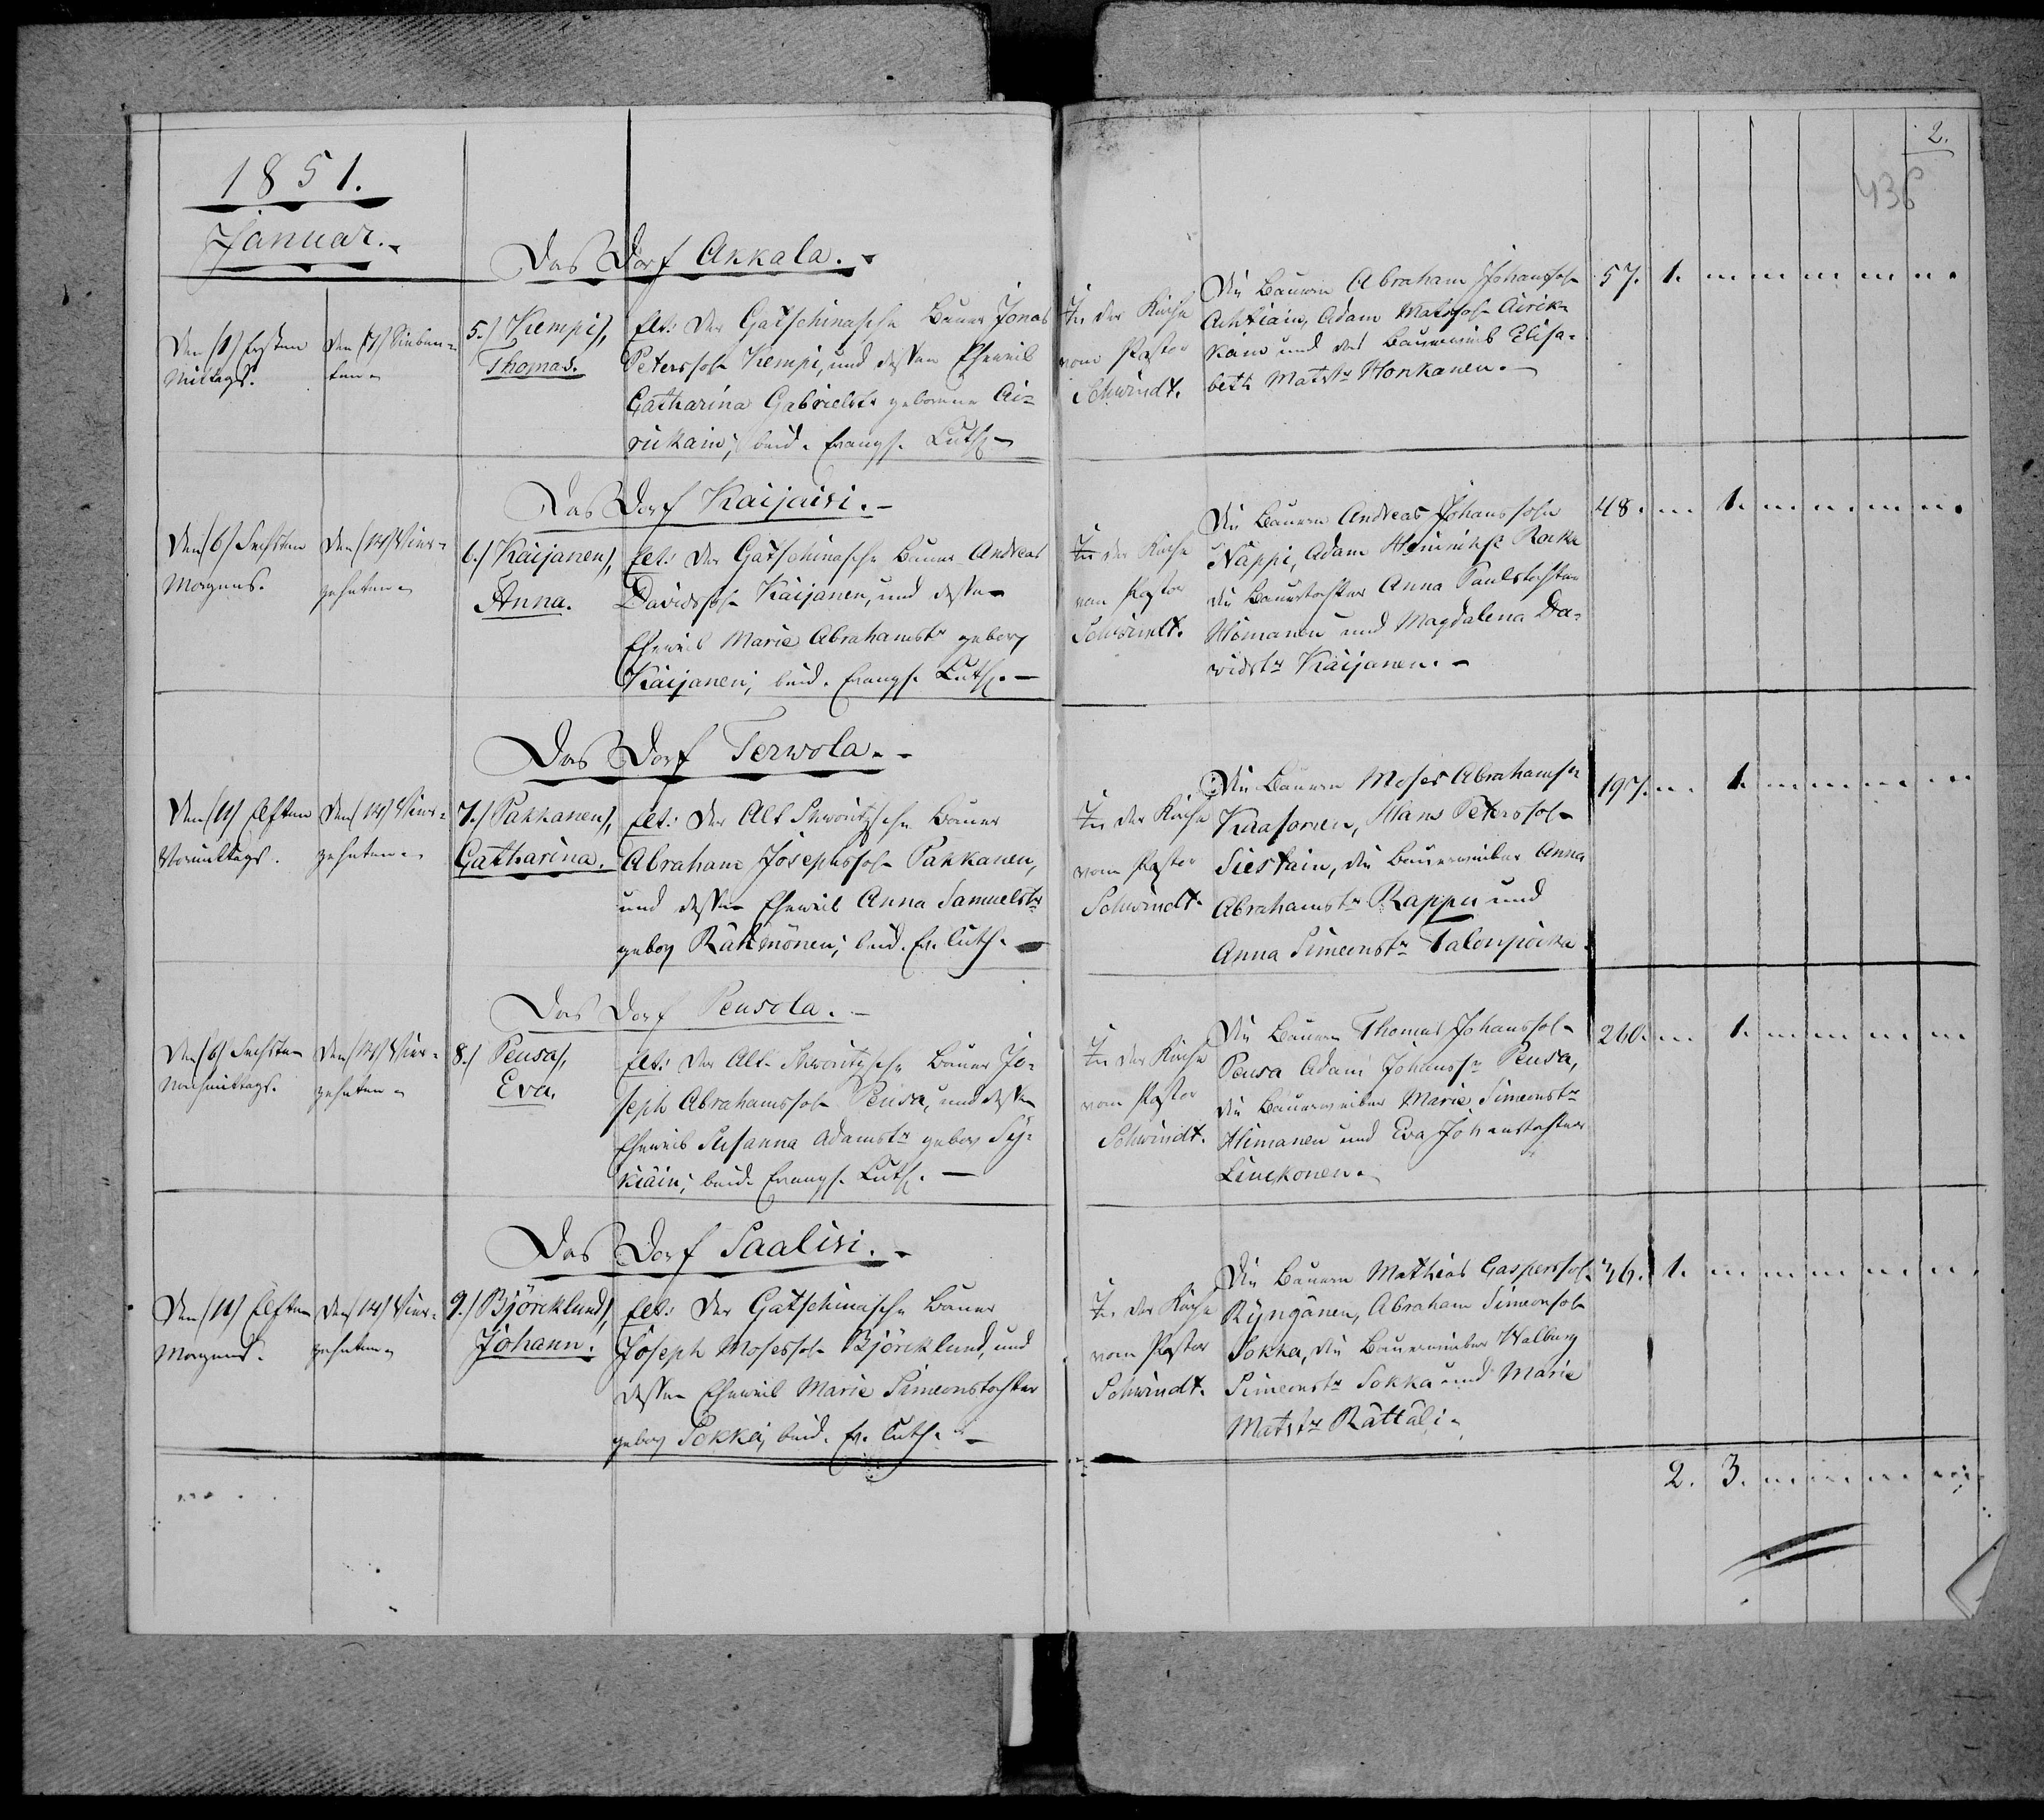 1851.
Januar.
Das Dorf Akkala.
Den (1) Ersten
Mittags.
Den (7) Sieben-
ten
5.) Kempi,
Thomas.
Elt: Der Gatschinasche Bauer Jonas
Peterssohn Kempi, und dessen Eheweib
Catharina Gabrielstr geborene Ai-
rikain; beid. Evangl. Luth.
In der Kirche
vom Pastor
Schwindt.
Die Bauern Abraham Johanssohn
Ahtiain, Adam Matssohn Airik-
kain und das Bauerweib Elisa-
beth Matstr Honkanen.
57. 1.
Das Dorf Kaijaisi.
Den (6) Sechsten
Morgens.
Den (14) Vier-
zehnten
6.) Kaijanen,
Anna.
Elt: Der Gatschinasche Bauer Andreas
Davidssohn Kaijanen, und dessen
Eheweib Marie Abrahamstr gebor
Kaijanen; beid. Evangl. Luth.
In der Kirche
vom Pastor
Schwindt.
Die Bauern Andreas Johanssohn
Näppi, Adam Heinrichs Rokka
die Bauertochter Anna Paulstochter
Himanen und Magdalena Da-
widstr Kaijanen.
48. 1.
Das Dorf Terwola.
Den (11) Elften
Vormittags.
Den (14) Vier-
zehnten
7.) Pakkanen,
Catharina.
Elt: Der Alt Skworitzsche Bauer
Abraham Josephssohn Pakkanen,
und dessen Eheweib Anna Samuelstr
gebor Rähmönen; beid. Ev. Luth.
In der Kirche
vom Pastor
Schwindt.
Die Bauern Moses Abrahamsn
Kaasonen, Hans Peterssohn
Siestain, die Bauerweiber Anna
Abrahamstr Rappu und
Anna Simeonstr Talonpoika
197. 1.
Das Dorf Peusola.
Den (6) Sechsten
Nachmittags.
Den (14) Vier-
zehnten
8.) Peusa,
Eva.
Elt: Der Alt-Skworitzsche Bauer Jo-
seph Abrahamssohn Peusa, und dessen
Eheweib Susanna Adamstr gebor Sy-
kiäin; beid. Evangl. Luth.
In der Kirche
vom Pastor
Schwindt.
Die Bauern Thomas Johanssohn
Peusa Adam Johanssn Peusa,
die Bauerweiber Marie Simeonstr
Himanen und Eva Johanstochter
Linckonen.
260. 1.
Das Dorf Saalisi.
Den (11) Elften
Morgens.
Den (14) Vier-
zehnten
9.) Björcklund,
Johann.
Elt: Der Gatschinasche Bauer
Joseph Mosessohn Björcklund, und
dessen Eheweib Marie Simeonstochter
gebor Sokka, beid. Ev. Luth.
In der Kirche
vom Pastor
Schwindt.
Die Bauern Mathias Casperssohn
Ryngänen, Abraham Simeonsohn
Sokka, die Bauerweiber Walburg
Simeonstr Sokka und Marie
Matstr Rättäli.
36. 1.
2. 3.
2.
436